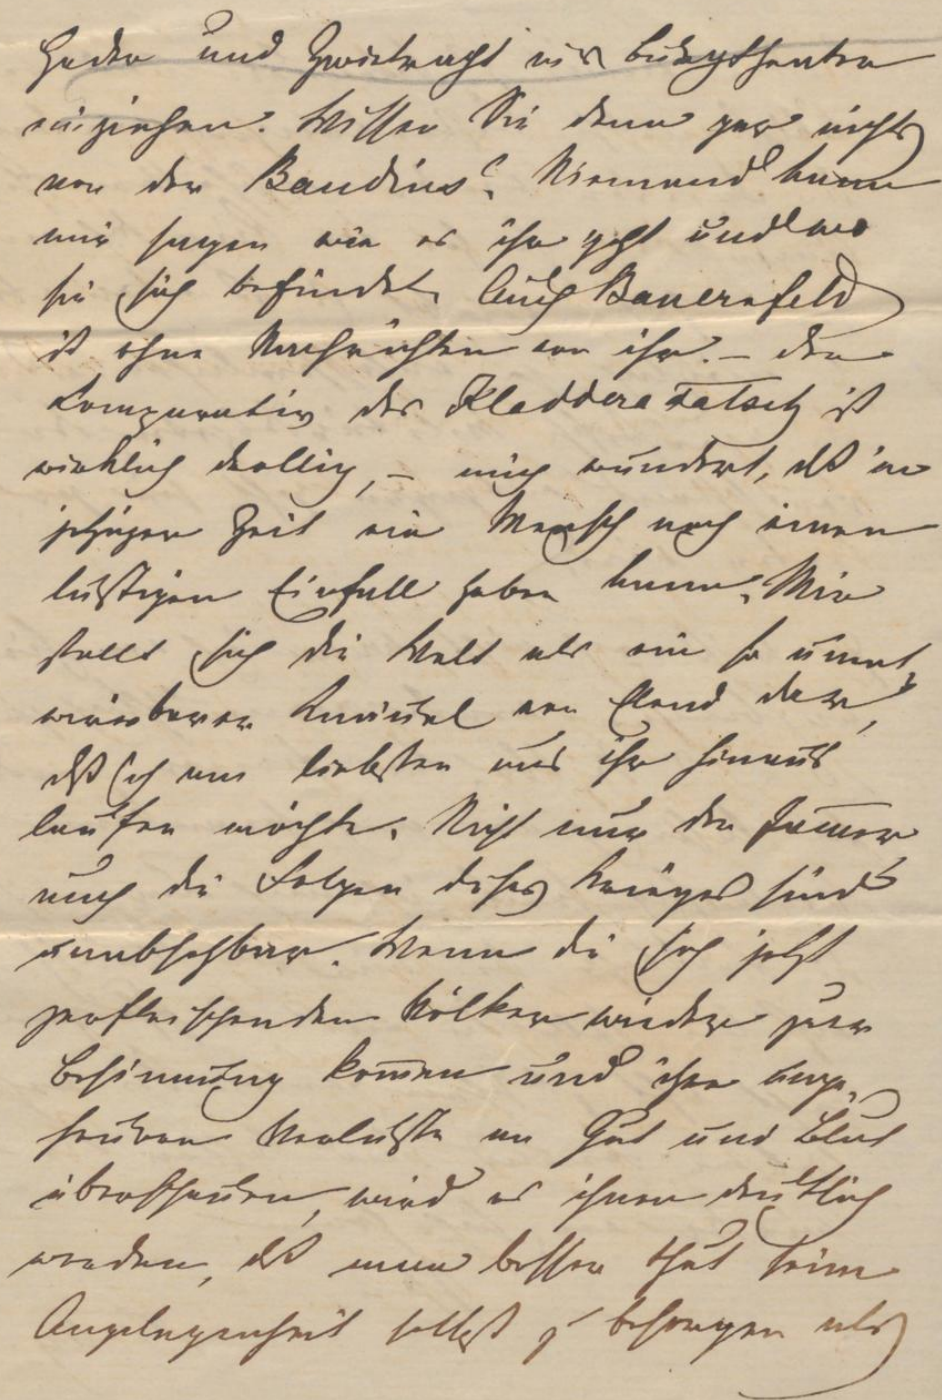 Hader und Zwietracht ins Burgtheater
einziehen. Wissen Sie denn gar nichts
von der Baudius? Niemand kann
mir sagen wie es ihr geht und wo
sie sich befindet. Auch Bauernfeld
ist ohne Nachrichten von ihr. – Der
Komparativ des Kladderatatsch ist
wirklich drollig, – mich wundert, dß in
jetziger Zeit ein Mensch noch einen
lustigen Einfall haben kann. Mir
stellt sich die Welt als ein so unent
wirrbarer Knäuel von Elend dar,
dß ich am liebsten aus ihr hinaus
laufen möchte. Nicht nur der Jam̅er
auch die Folgen dieses Krieges sind
unabsehbar. Wenn die sich jetzt
zerfleischenden Völker wieder zur
Besinnung kom̅en und ihre unge-
heuren Verluste an Gut und Blut
überschauen, wird es ihnen deutlich
werden, dß man besser thut seine
Angelegenheit selbst z' besorgen als